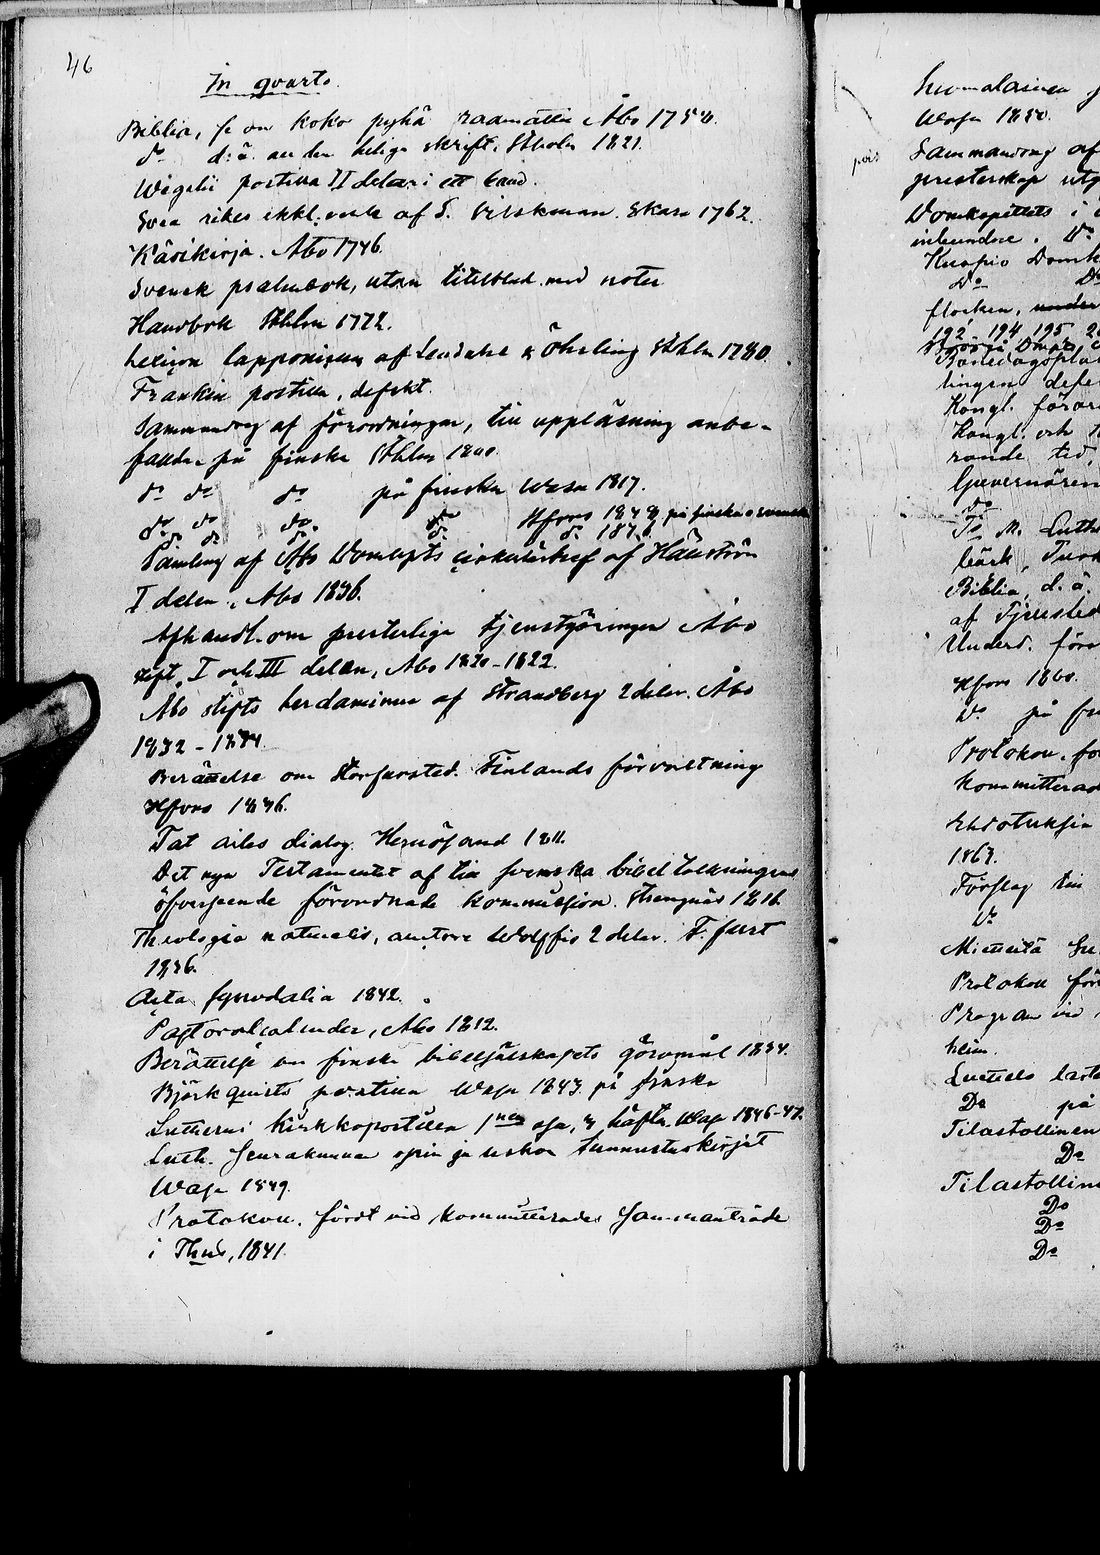 46
In qvarto.
Biblia, se on koko pyhä raamattu Åbo 1758.
do d: ä. all den heliga skrift. Stholm 1821.
Wegelii postilla II delar i ett band.
Svea rikes ekkl. verk af S. Wilskman. Skara 1762.
Käsikirja. Åbo 1746.
Svensk psalmbok, utan titelblad med noter
Handbok Sthlm 1772.
Lexicon lapponicum af Lindahl & Öhrling Sthlm 1780.
Frankin postilla, defekt.
Sammandrag af förordningar, till uppläsning anbe-
fallda på finska Sthlm
do do do på finska Wasa 1817.
do do do do Hfors 1848 på finska o svenska
do do do do do 1876
Samling af Åbo Domkptls cirkulärbref af
I delen, Åbo 1836.
Afhandl. om presterliga tjenstgöringen Åbo
stift. I och III delen, Åbo 1820-1822.
Åbo stifts herdaminne af Strandberg 2 delar. Åbo
1832-1834.
Berättelse om Storfursted. Finlands förvaltning
Hfors 1836.
Tat ailes dialog. Hernösand 1811.
Det nya Testamentet af till svenska bibeltolkningens
öfverseende förordnade kommission. Strengnäs 1816
Theologia naturalis, autore Wolffio 2 delar. F.
1736.
Acta synodalia 1842.
Pastoralcalender, Åbo 1812.
Berättelse om finska bibelsälskapets göromål 1834.
Björkquists postilla Wasa 1843 på finska
Lutherus kirkkopostilla 1nen osa, 4 häfte. Wasa 1846-47.
Luth. seurakunnan opin ja uskon tunnustuskirjat
Wasa 1849.
Protokoll, fördt vid kommitterades sammanträde
i Thus, 1841.
Suomalainen
Wasa 1850.
pois
Sammandrag af
presterskap utg
Domkapitlets i
inbundne. Do
Kuopio Domk
Do Do
flocken, under
192, 194, 195, 2
lingen defe
Kongl. föror
Kongl. och
rande tid,
Guvernören
do
M. Luth
bäck, Turk
Biblia, d. ä.
af Tjeusted
Underd. förs
Hfors 1860.
Do på fin
Protokoll, fö
Kommitterad
Ehdotuksia
1863.
Förslag till
Do
Protokoll för
Program vid
heim.
Do på
Tilastollinen
Do
Tilastollin
Do
Do
Do